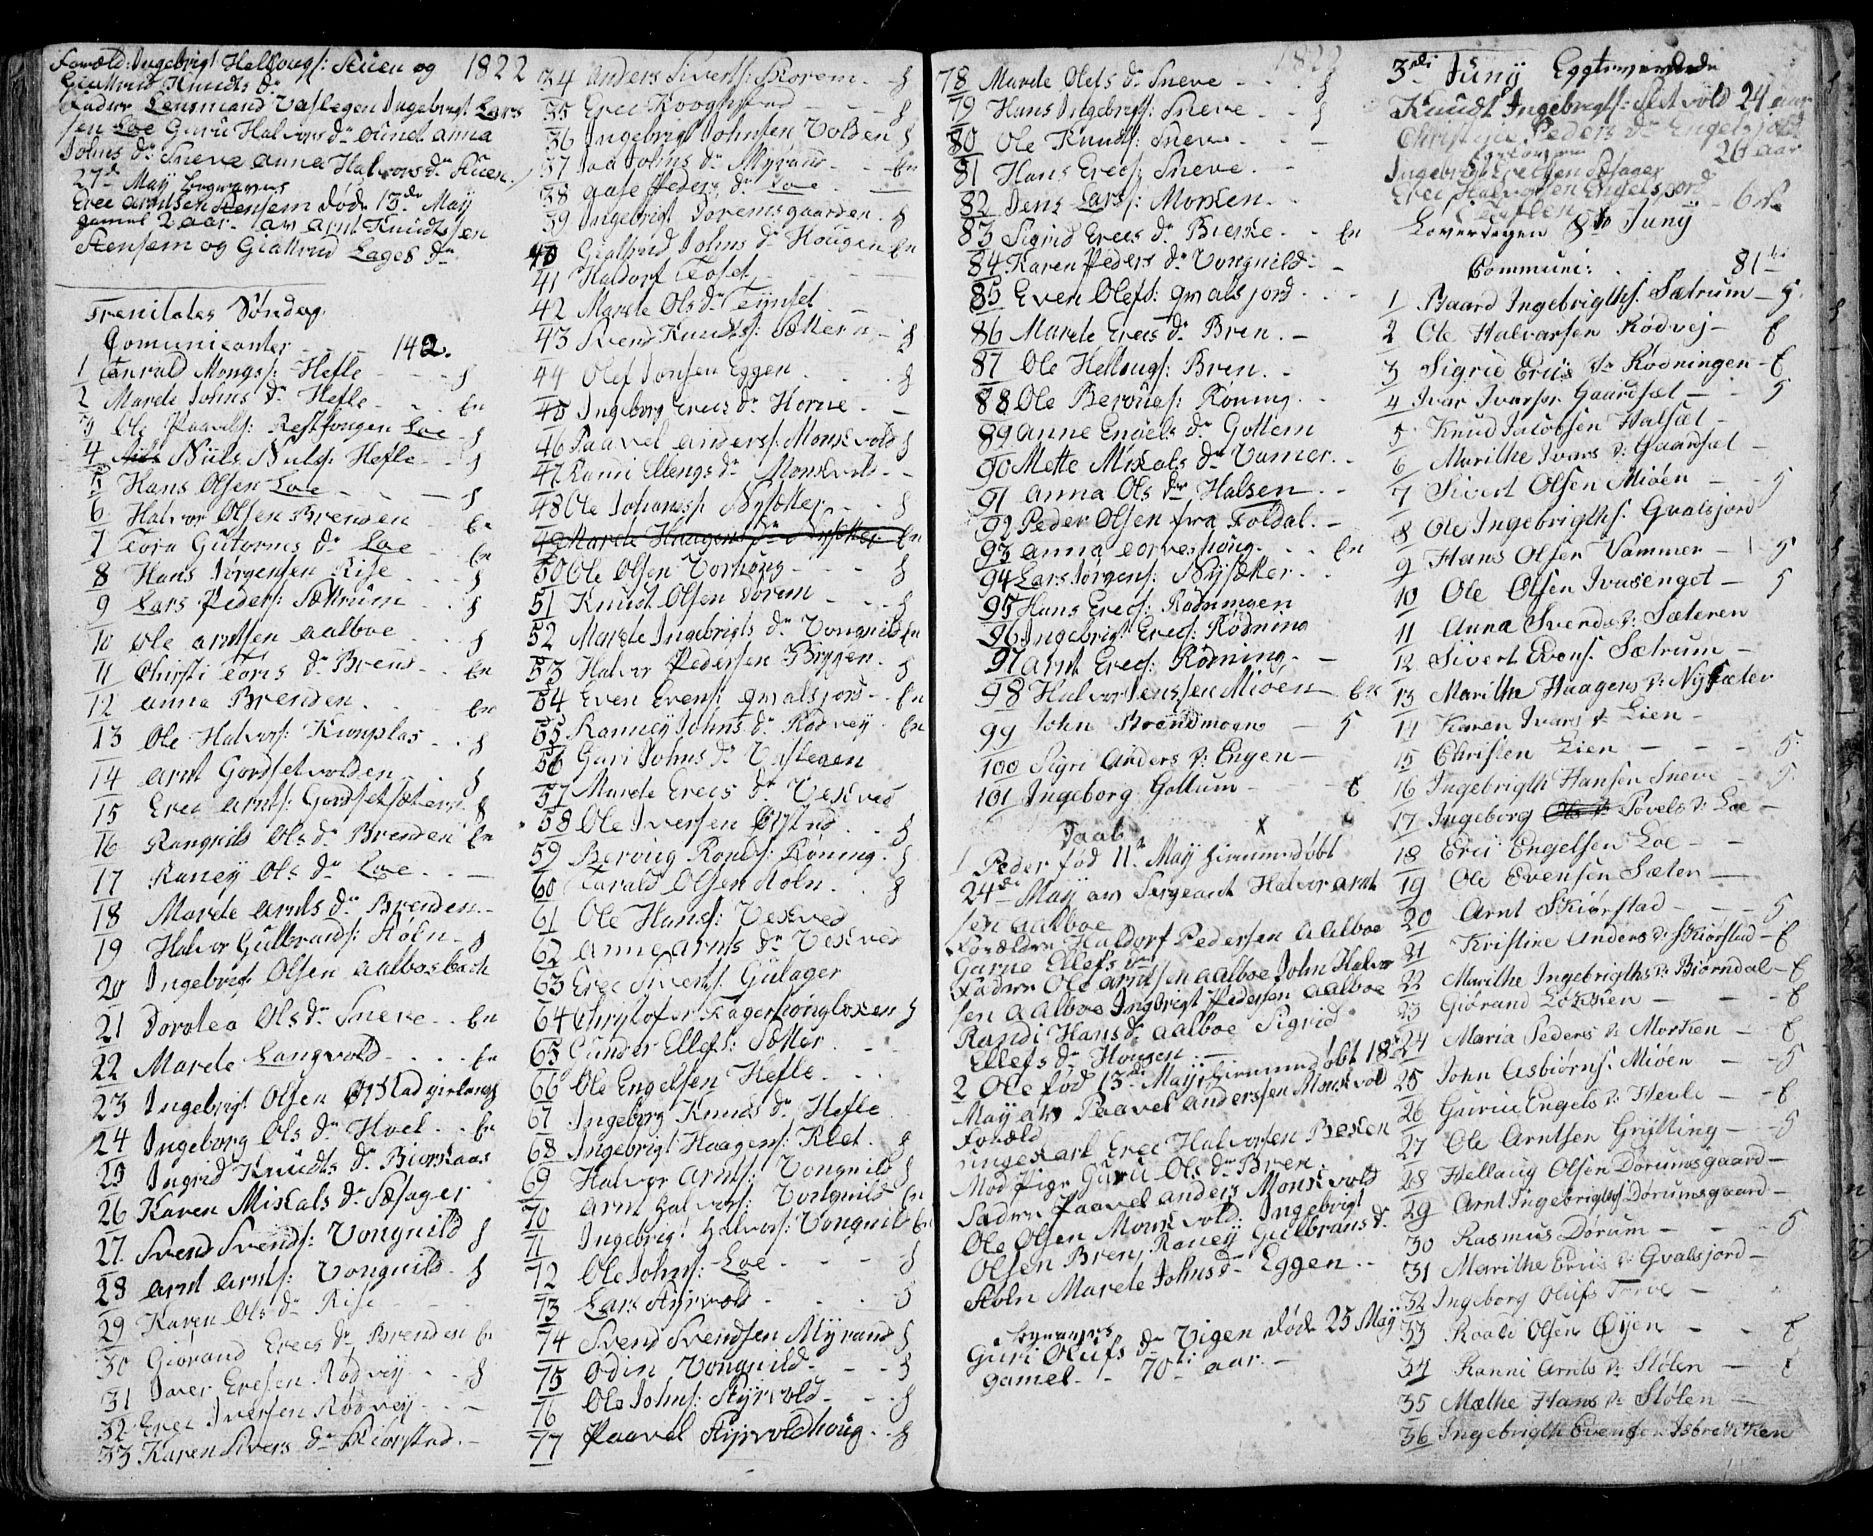 Foræld: Ingebrigt Hellougs: Stuen og 1822
Giertrud Knudts dr
Fadere Lensmand Vaslegen Ingebrigt Lars
sen Loe Guru Halvors dr Aunet Anna
Johns dr Sneve Anna Halvors dr Stuen
27de May begraves
Erec Arntsen Stensem døde 13de May
gamel 2 aar. av Arnt Knudtsen
Stensem og Giertrud Lages dr
Trenitates Søndag
Comunicanter 142.
1 Conrald Mongs: Hefle
2 Marete Johns dr Hefle En
3 Ole Paavels: Loe
4 Niels Niels: Hefle
5 Hans Olsen Loe
6 Halvor Olsen Brenden En
7 Tora Gutorms dr Loe En
8 Hans Jørgensen Rise
9 Lars Peders: Sættrum
10 Ole Arntsen Aalboe
11 Christi Tores dr Brend En
12 Anna Brenden En
13 Ole Halvors: Kionplas
14 Arnt Gordsetvolden
15 Erec Arnts: Gordsetsætern
16 Rangnild Ols dr Brenden En
17 Raney Ols dr Loe
18 Marete Arnts dr Brenden
19 Halvor Gulbrands: Støln
20 Ingebrigt Olsen Aalbosbach
21 Dorotea Ols dr Sneve En
22 Marete Langvold En
23 Ingebrigt Olsen Ørstad
24 Ingeborg Ols dr Hoel En
25 Ingrid Knudts dr Biørkaas
26 Karen Mikals dr Sæsager
27 Svend Svends: Vongnild
28 Arnt Arnts: Vongnild
29 Karen Ols dr Rise
30 Giørand Erecs dr Brenden En
31 Iver Eresen Rødvey
32 Erec Iversen Rødvey
33 Karen Sivers dr Skiørstad
34 Anders Siverts: Skorem
35 Erec Kroghstad
36 Ingebrigt Johnsen Volden
37 Johns dr Myrand En
38 Aase Peders dr Loe
39 Ingebrigt Doremsgaarden
40 Giertrud Johns dr Hougen En
41 Haldorf Tøset
42 Marete Ols dr Tynset
43 Svend Knudts: Sættern
44 Olef Jonsen Eggen
45 Ingeborg Erecs dr Horne
46 Paavel Anders: Monskvold
47 Ranni Ellengs dr Monskvold
48 Ole Johans: Nysætter
49 Marete Haagens dr Nysætter En
50 Ole Olsen Vorhoug
51 Knudt Olsen Dorum
52 Marete Ingebrigts dr Vongnild En
53 Halvor Pedersen Bryggen
54 Even Evens: Gvalsjord En
55 Ranney Johns dr Rødvey En
56 Guri Johns dr Vaslegen
57 Marete Erecs dr Veskved
58 Ole Iversen Ørstad
59 Beroug Ronds: Roning
60 Tarald Olsen Støln
61 Ole Hans: Veskved
62 Anne Arnts dr Veskved
63 Erec Siverts: Gulager
64 Christofer Fagerhougløken
65 Gunder Ellefs: Sætter
66 Ole Engelsen Hefle
67 Ingeborg Knuds dr Hefle
68 Ingebrigt Haagens: Klet
69 Halvor Arnts: Vongnild
70 Arnt Halvors: Vongnild En
71 Ingebrigt Halvors: Vongnild En
72 Ole Johns: Loe
73 Lars Styrvold
74 Svend Svendsen Myrand
75 Odin Vongnild
76 Ole Johns: Styrvold
77 Paavel Styrvoldhoug
78 Marete Olefs dr Sneve 1822
79 Hans Ingebrigts: Sneve
80 Ole Knuds: Sneve
81 Hans Erecs: Sneve
82 Jens Lars: Morken
83 Sigrid Erecs dr Bierke En
84 Karen Peders dr Vongnild
85 Even Olefs: Gvalsjord
86 Marete Erecs dr Bren
87 Ole Hellougs: Bren
88 Ole Berougs: Roning
89 Anne Engels dr Gottem
90 Mette Mikals dr Vamer
91 Anna Ols dr Halsen
92 Peder Olsen fra Foldal
93 Anna Torveshoug En
94 Lars Jørgens: Nysæter
95 Hans Erecs: Rødningen
96 Ingebrigt Erecs: Rødning
97 Arnt Erecs: Rødning
98 Halvor Jenssen Mioen En
99 John Brendmoen 5
100 Sigri Anders dr Engen
101 Ingeborg Gottum E
Daab
1 Peder fød 11te May hiemmedøbt
24de May av Sergeant Halvor Arnt
sen Aalboe
Forældre Haldorf Pedersen Aalboe
Gurue Ellefs dr
Fadere Ole Arntsen Aalboe John Halvor
sen Aalboe Ingebrigt Pedersen Aalboe
Randi Hans dr Aalboe Sigrid
Ellefs dr Hougen
2 Ole fød 13de May hiemmedøbt 18de
May av Paavel Anderssen Monskvold
Foræld
ungekarl Erec Halvorsen Bekken
Mod Pige Guru Ols dr Bren
Fadere Paavel Anders Monskvold
Ole Olsen Monskvold Ingebrigt
Olsen Bren, Raney Gulbrans dr
Støln Marete Johns dr Eggen
begraves
Guri Olufs dr Vigen døde 25 May
gamel 70ti aar.
3die Juny Egteviede
Knudt Ingebrigts: Setvold 24 aar
Peders dr Engelsjord
26 aar
Ingebrigt Erecsen Sæsager
Erec Halvorsen Engelsjord
Løverdagen 8de Juny
Communi: 81
1 Baard Ingebrigths. Sætrum 5
2 Ole Halvarsen Rødvej E
3 Sigrid Erics D: Rødningen E
4 Ivar Ivarsen Gaardsæt 5
5 Knud Jacobsen Halsæt
6 Marithe Ivars D: Gaardsæt
7 Sivert Olsen Mioen 5
8 Ole Ingebrigths. Gvalsjord
9 Hans Olsen Vammer 5
10 Ole Olsen Ivasenget 5
11 Anna Svends D: Sæteren
12 Sivert Evens. Sætrum
13 Marithe Haagens D: Nysæter
14 Karen Ivars D: Lien
15 Christen Lien 5
16 Ingebrigth Hansen Sneve 5
17 Ingeborg Povels D: Loe
18 Eric Engelsen Loe
19 Ole Evensen Sæter
20 Arnt Skiørstad 5
21 Kristine Anders D: Skiørstad E
22 Marithe Ingebrigths D: Biørndal E
23 Giørand Løkken E
24 Maria Peders D: Morken E
25 John Asbiørns. Mioen 5
26 Guruu Engels D: Hevle E
27 Ole Arntsen Grytting 5
28 Hellaug Olsen Dorumsgaard
29 Arnt Ingebrigths. Dorumsgaard
30 Rasmus Dorum 5
31 Marithe Erics D: Gvalsjord
32 Ingeborg Olufs Torve
33 Roald Olsen Øyen E
34 Ranni Arnts D: Stølen E
35 Mæthe Hans D: Stølen
36 Ingebrigth Evensen Isbrekken